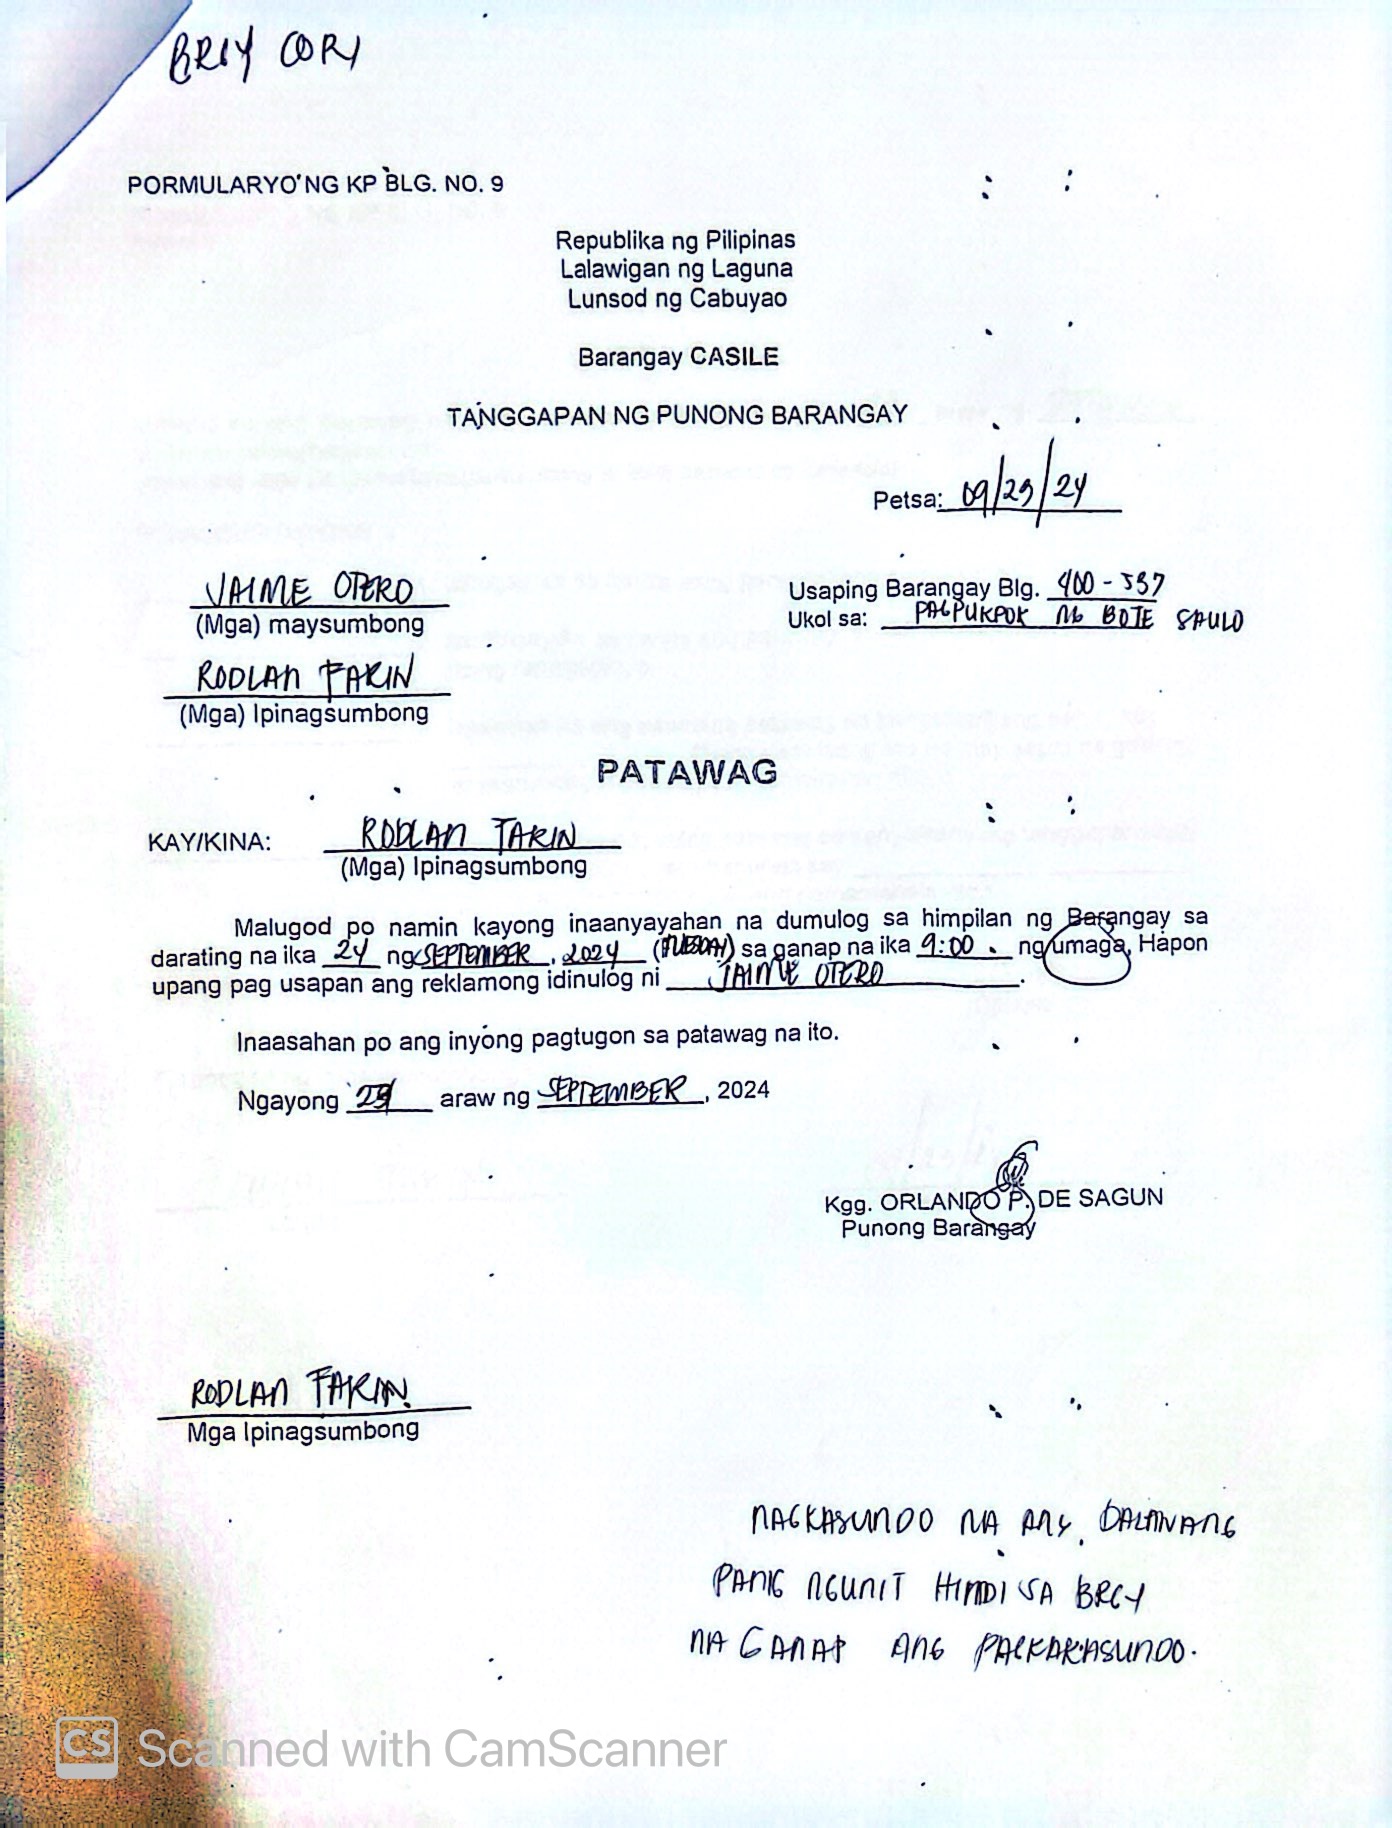 BRGY COPY
PORMULARYO NG KP BLG. NO. 9
Republika ng Pilipinas
Lalawigan ng Laguna
Lunsod ng Cabuyao
Barangay CASILE
TANGGAPAN NG PUNONG BARANGAY
Petsa: 09/23/24
JAIME OTERO
(Mga) maysumbong
Usaping Barangay Blg. 400-537
Ukol sa: PAGPUKPOK NG BOTE SA ULO
RODLAN FARIN
(Mga) Ipinagsumbong
PATAWAG
KAY/KINA: RODLAN FARIN
(Mga) Ipinagsumbong
Malugod po namin kayong inaanyayahan na dumulog sa himpilan ng Barangay sa
darating na ika 24 ng SEPTEMBER, 2024 (TUESDAY) sa ganap na ika 9:00 ng umaga, Hapon
upang pag usapan ang reklamong idinulog ni JAIME OTERO.
Inaasahan po ang inyong pagtugon sa patawag na ito.
Ngayong 23 araw ng SEPTEMBER, 2024
Kgg. ORLANDO P. DE SAGUN
Punong Barangay
RODLAN FARIN
Mga Ipinagsumbong
NAGKASUNDO NA ANG DALAWANG
PANIG NGUNIT HINDI SA BRGY
NAGANAP ANG PAGKAKASUNDO.
CS Scanned with CamScanner